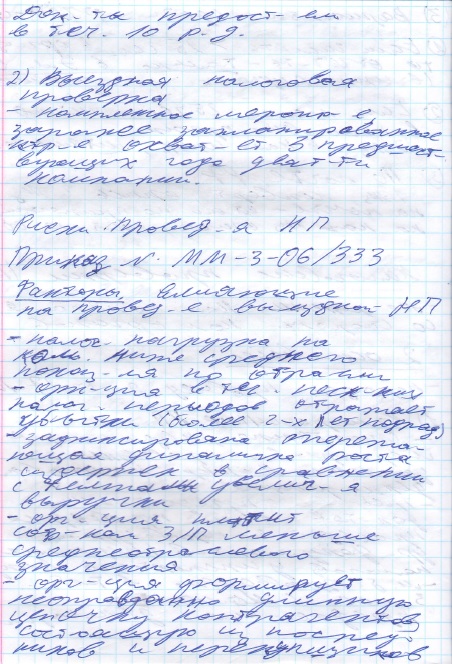 Док-ты предост-ем
в теч. 10 р. д.
2) Выездная налоговая
проверка
- комплексное меропр-е,
заранее запланированное
ктр-е охват-ет 3 предшест-
вующих года деят-ти
компании.
Риски провед-я НП
Приказ N. ММ-3-06/333
Факторы, влияющие
на провед-е выездной НП
- налог. нагрузка на
комп. ниже среднего
показ-ля по отрасли
- орг-ция в теч. неск-ких
налог. периодов отражает
убытки (более 2-х лет подряд)
- зафиксирована опережа-
ющая динамика роста
издержек в сравнении
с темпами увелич-я
выручки
- орг-ция платит
сотр-кам З/П меньше
среднеотраслевого
значения
- орг-ция формирует
неоправданно длинную
цепочку контрагентов
состоящую из посред-
ников и перекупщиков